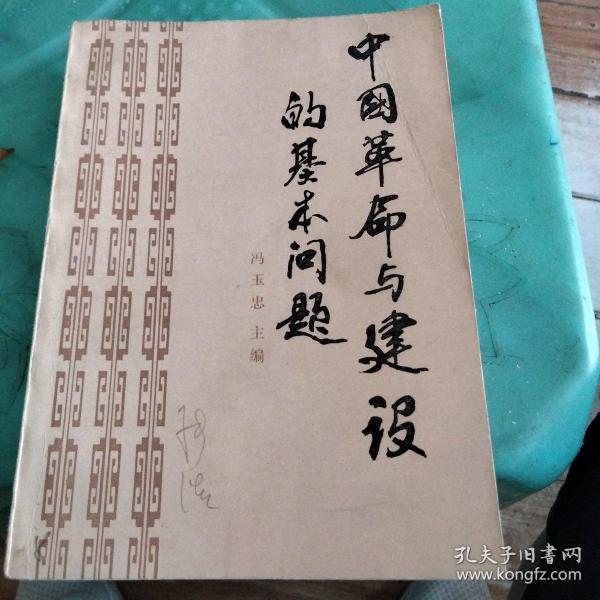 中國革命与建设
的基本问题
冯玉忠 主编
孔夫子旧书网
www.kongfz.com